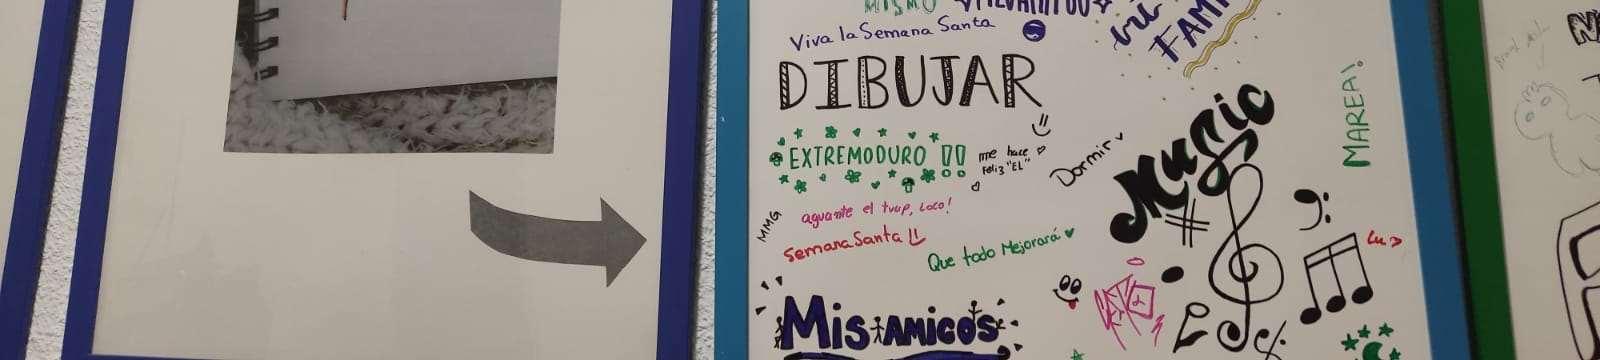 MISMO
Viva la Semana Santa
FAMI
DIBUJAR
MAREA!
EXTREMODURO !!
me hace
FELIZ "EL"
Dormir
Music
MMG
aguante el tvup, loco!
Semana Santa
Que todo Mejorará
Lu
MIS AMIGOS